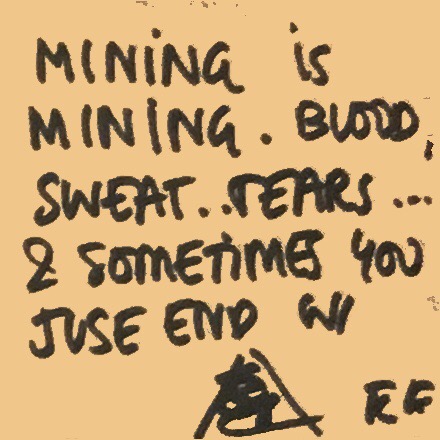 MINING is
MINING. BLOOD,
SWEAT...TEARS...
& SOMETIMES YOU
JUSE END W/